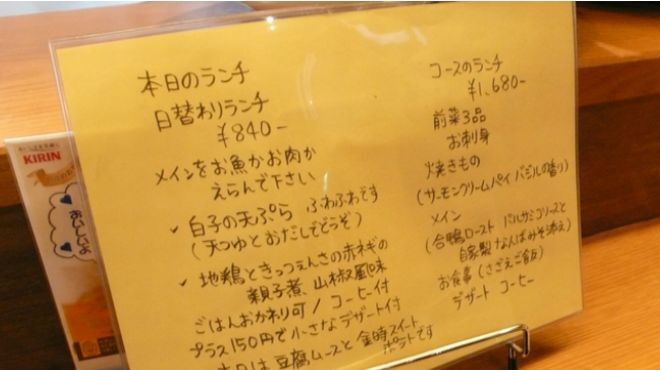 本日のランチ
日替わりランチ
¥840-
メインをお魚かお肉か
えらんで下さい
✓ 白子の天ぷら ふわふわです
(天つゆとおだしでどうぞ)
✓ 地鶏ときっつえんさの赤ネギの
親子煮、山椒風味
ごはんおかわり可 / コーヒー付
プラス150円で小さなデザート付
本日は豆腐ムースと金時スイート
ポテトです
コースのランチ
¥1,680-
前菜3品
お刺身
焼きもの
(サーモンクリームパイ バジルの香り)
メイン
(合鴨ロースト バルサミコソースと
自家製なんばみそ添え)
お食事(さごえご飯)
デザート コーヒー
KIRIN
おいしいよ